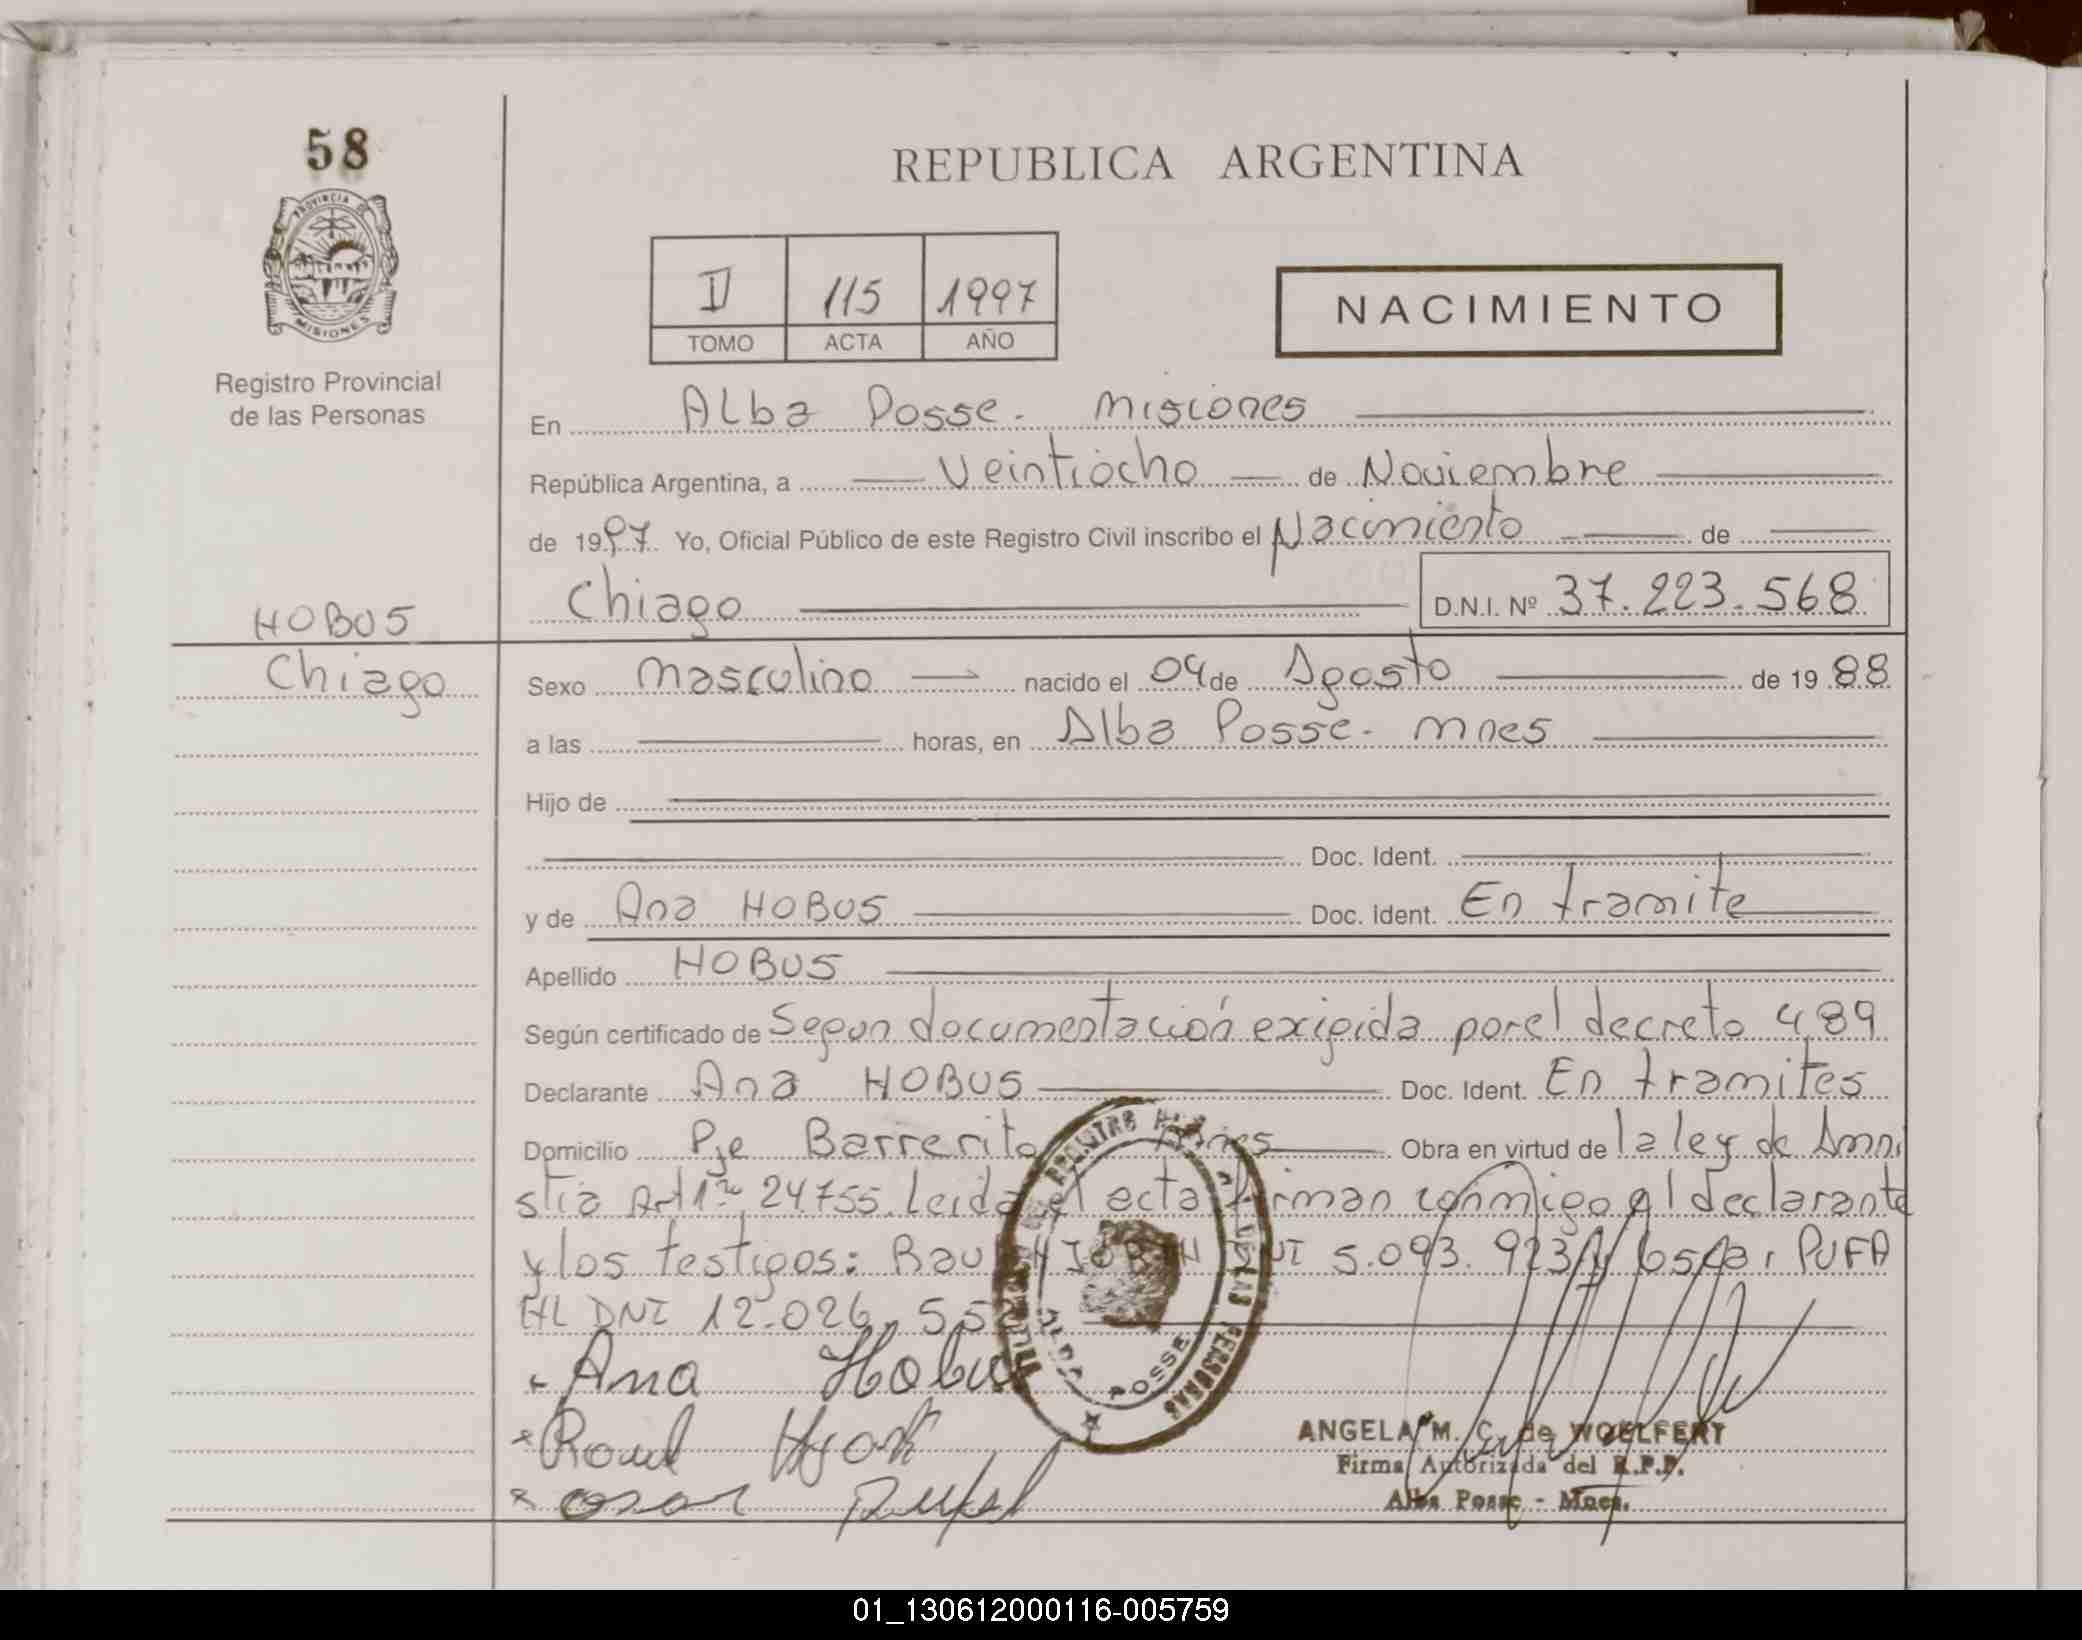 58
PROVINCIA DE
MISIONES
Registro Provincial
de las Personas
REPUBLICA ARGENTINA
II 115 1997
TOMO ACTA AÑO
NACIMIENTO
En Alba Posse - Misiones
República Argentina, a Veintiocho de Noviembre
de 1997. Yo, Oficial Público de este Registro Civil inscribo el Nacimiento de
Chiago D.N.I. Nº 37.223.568
HOBUS
Chiago
Sexo Masculino nacido el 04 de Agosto de 1988
a las horas, en Alba Posse - Mnes
Hijo de
Doc. Ident.
y de Ana HOBUS Doc. Ident. En tramite
Apellido HOBUS
Según certificado de Segun documentación exigida por el decreto 489
Declarante Ana HOBUS Doc. Ident. En tramites
Domicilio Pje Barrerito Mnes Obra en virtud de la ley de Amni
stia Art 1º 24.755. Leida el acta firman conmigo el declarante
y los testigos: DNI 5.093.923 y PUFA
HL DNI 12.026.55
Ana Hobus
ALBA POSSE
ANGELA M. C. de WOELFERT
Firma Autorizada del R.P.P.
Alba Posse - Mnes.
01_130612000116-005759